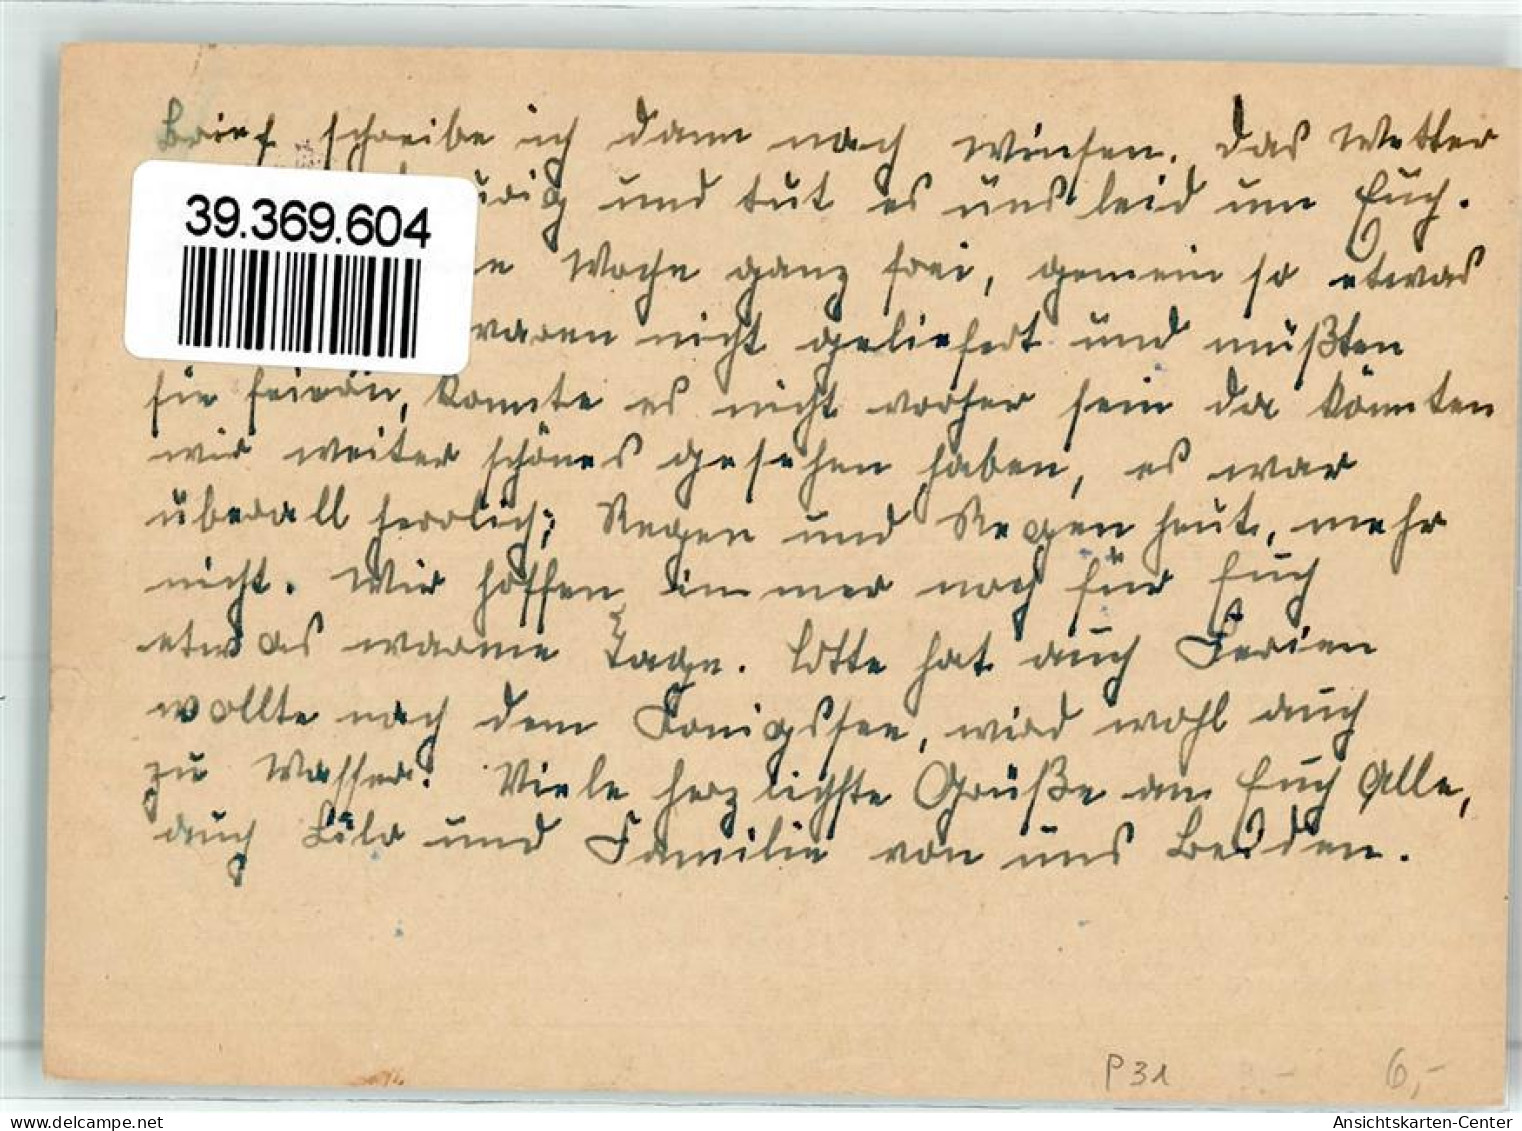 Brief schreibe ich dann nach Winsen. Das Wetter
39.369.604
urig und tut es uns leid um Euch.
ne Woche ganz frei, gemein so etwas
waren nicht geliefert und müßten
sie feiern, konnte es nicht vorher sein da könnten
wir weiter schönes gesehen haben, es war
überall herrlich; Regen und Regen heute, mehr
nicht. Wir hoffen immer noch für Euch
etwas warme Tage. Lotte hat auch Ferien
wollte nach dem Königssee, wird wohl auch
zu Wasser. Viele herzlichste Grüße an Euch Alle,
auch und Familie von uns Beiden.
P 31
6,-
Ansichtskarten-Center